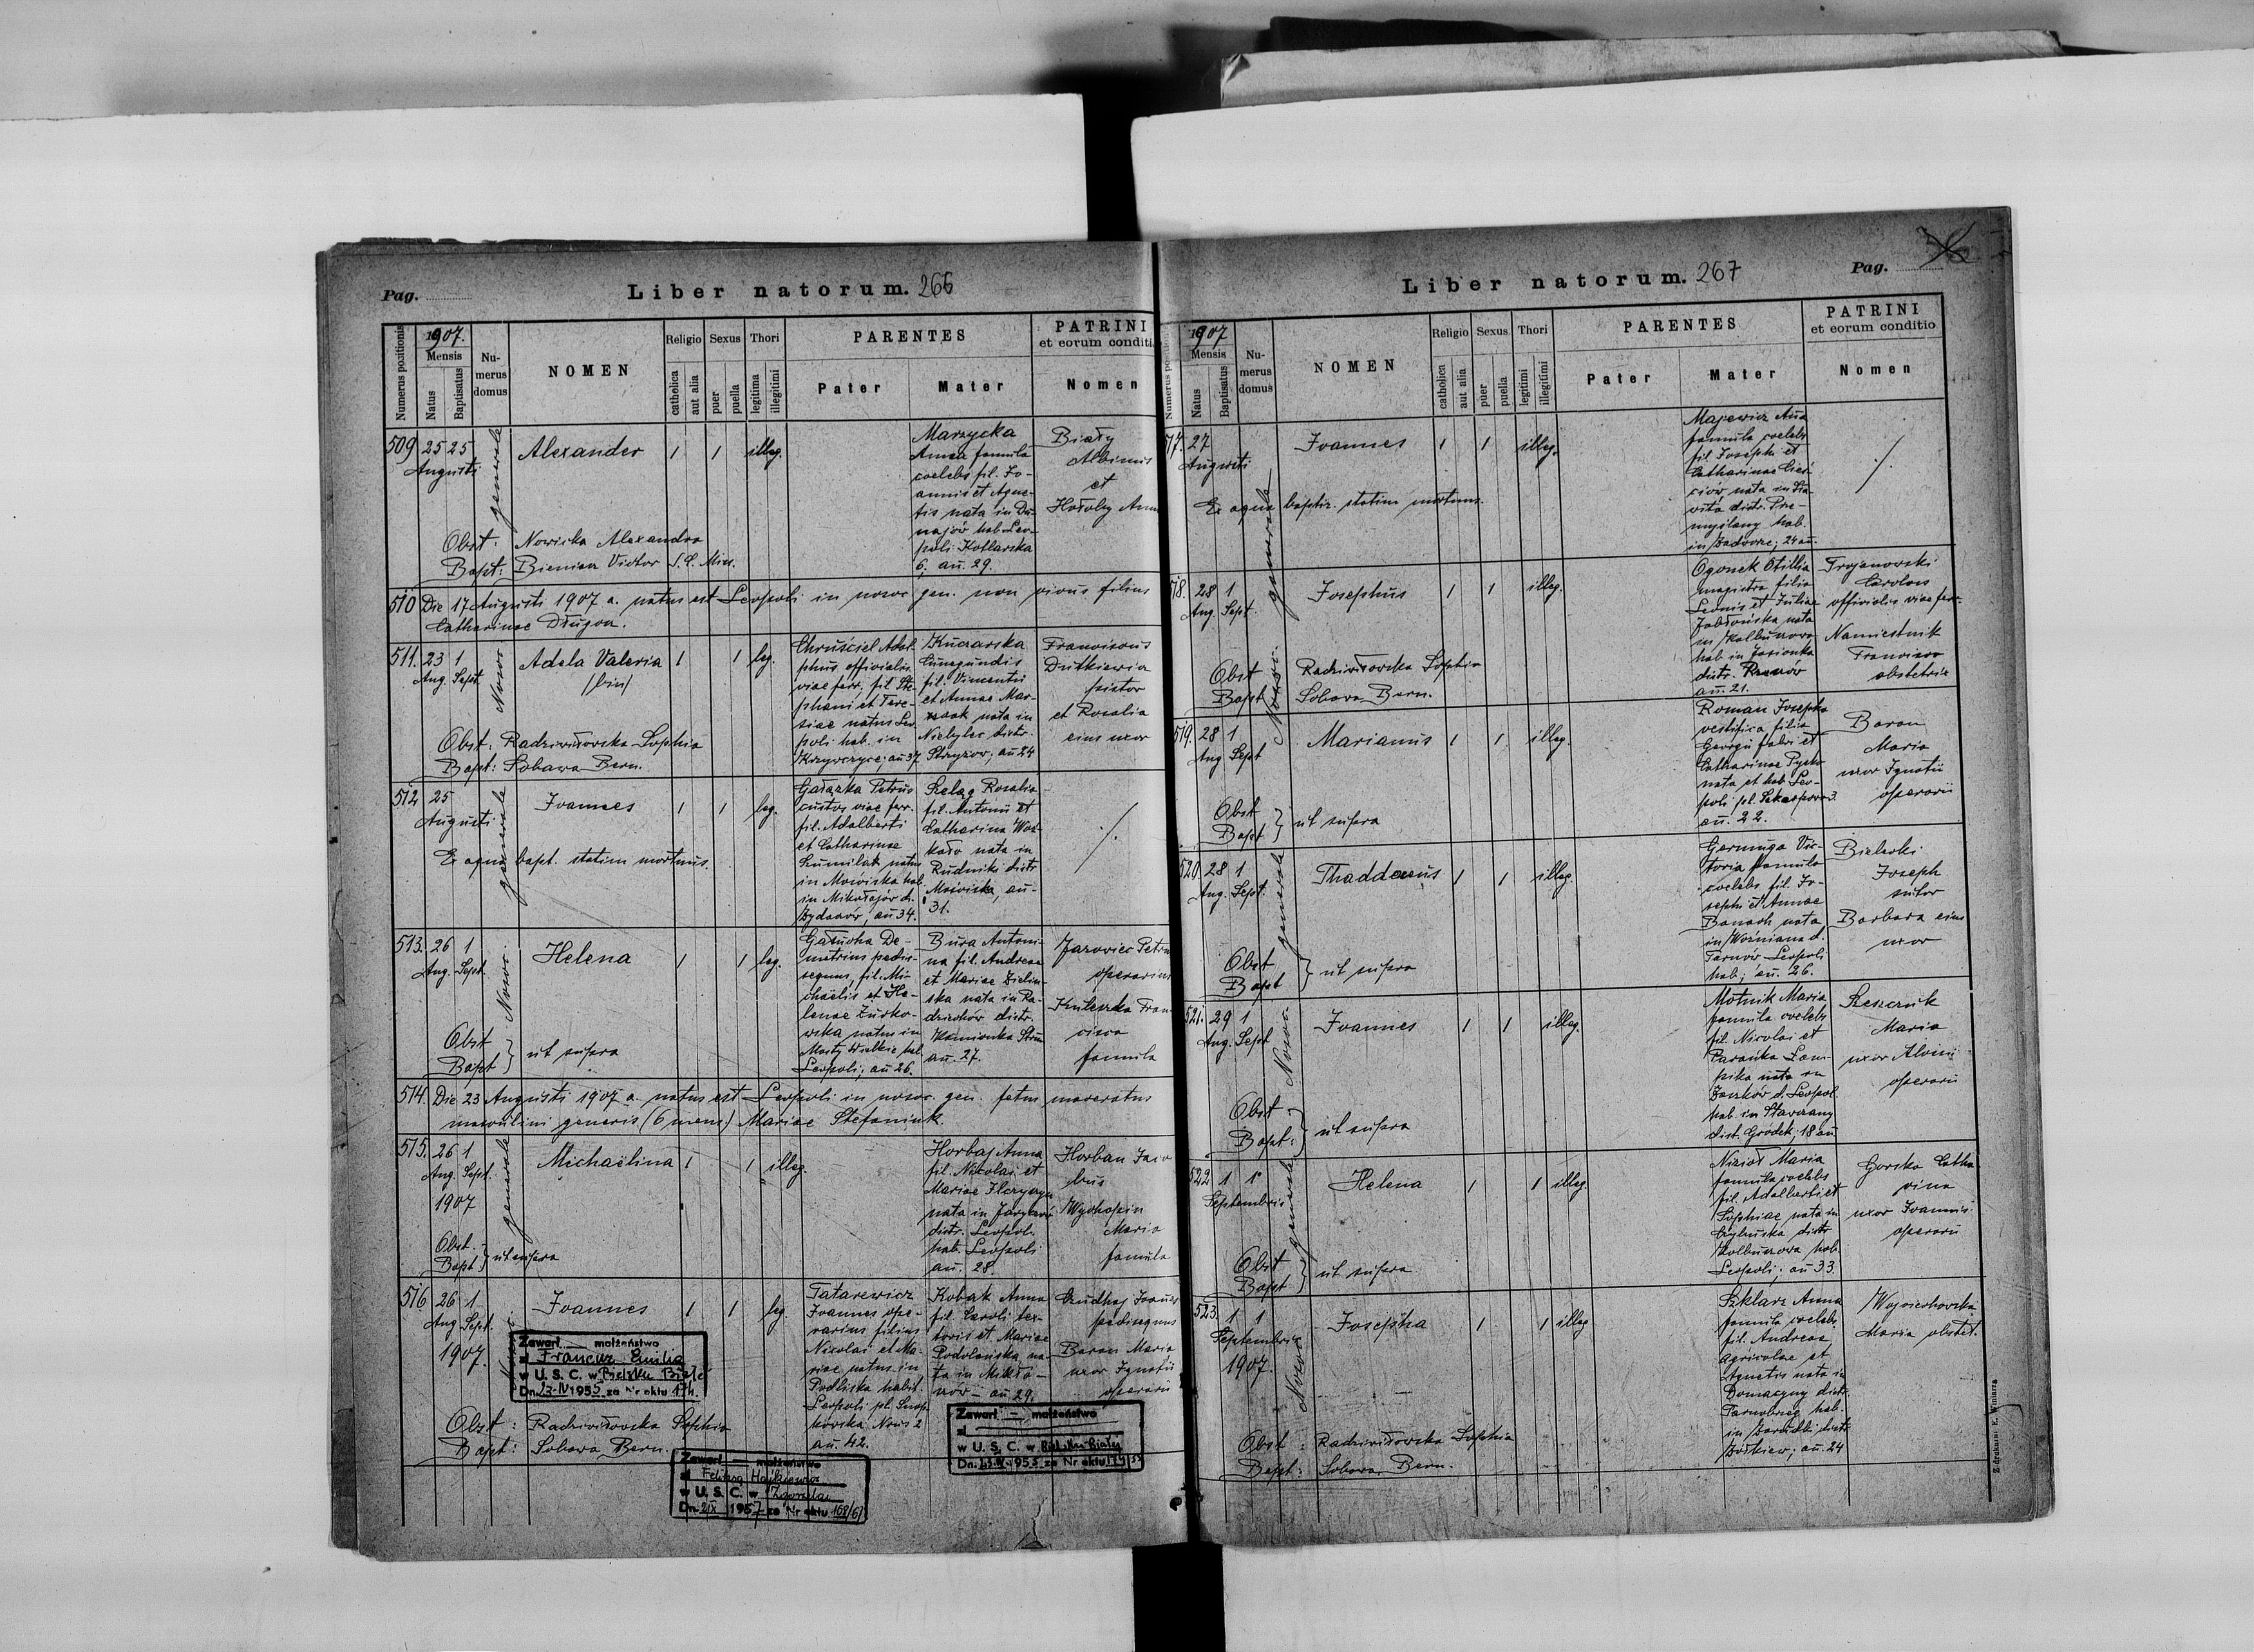 Pag.
Liber natorum. 266
Numerus positionis
1907.
Mensis
Natus
Baptisatus
Nu-
merus
domus
NOMEN
Religio
catholica
aut alia
Sexus
puer
puella
Thori
legitima
illegitimi
PARENTES
Pater
Mater
PATRINI
et eorum conditi
Nomen
509
25 25
Augusti
generale
Alexander
1
1
illeg.
Marzycka
Anna famula
coelebs fil. Jo-
annis et Agne-
tis nata in Du-
najów hab. Leo-
poli Kotlarska
6, an. 29.
Biały
Albinus
et
Hołoby Anna
Obst: Nowicka Alexandra
Bapt: Bieniar Victor S. C. Miss.
510 Die 17 Augusti 1907 a. natus est Leopoli in nosoc. gen. non vivus filius
Catharinae Długon.
511.
23 1
Aug. Sept.
Nosoc.
Adela Valeria
/bin/
1
1
leg.
Chruściel Adol-
phus officialis
viae ferr. fil. Ste-
phani et There-
siae natus Leo-
poli hab. in
Krzywczyce; an 37
Kucharska
Cunegundis
fil. Vincentii
et Annae Mar-
nata in
Niebylec distr.
Strzyżow; an 24
Franciscus
Dutkiewicz
pistor
et Rosalia
eius uxor
Obst: Radziwiłowska Sophia
Bapt: Sobawa Bern.
512
25
Augusti
generale
Joannes
1
1
leg.
Gałązka Petrus
custos viae ferr.
fil. Adalberti
et Catharinae
Szumilak natus
in Mościska hab.
in Mikołajów d.
Żydaczów, an 34.
Szeląg Rosalia
fil. Antonii et
Catharina Woź-
kało nata in
Rudniki distr.
Mościska, an-
31.
./.
Ex aqua bapt. statim mortuus.
513.
26 1
Aug. Sept.
Nosoc.
Helena
1
1
leg.
Gałucha De-
metrius pedis-
sequus, fil. Mi-
chaëlis et He-
lenae Żurko-
wska natus in
Mosty Wielkie hab.
Leopoli; an 26.
Bura Antoni-
na fil. Andreae
et Mariae Zielin-
ska nata in Ra-
dziechów distr.
Kamionka Strum
an. 27.
Jarowiec Petrus
operarius
Kuleszka Fran-
cisca
famula
Obst
Bapt } ut supra
514. Die 23 Augusti 1907 a. natus est Leopoli in nosoc. gen. fetus maceratus
masculini generis (6 mens.) Mariae Stefaniuk.
515.
26 1
Aug. Sept.
1907
generale
Michaëlina
1
1
illeg.
Horbaj Anna
fil. Nicolai et
Mariae
nata in Jaryczów
distr. Leopol.
hab. Leopoli
an. 28.
Horban Jaco
bus
Wychopin
Maria
famula
Obst.
Bapt } ut supra
516
26 1
Aug. Sept.
1907.
Joannes
1
1
leg.
Tatarewicz
Joannes ope-
rarius filius
Nicolai et Ma-
riae natus in
Podliska habit.
Leopoli pl.
Nows 2
an. 42.
Kobak Anna
fil. Caroli tex-
toris et Mariae
Podolańska na-
ta in Mikła-
szów - an 29.
Joannes
pedisequus
Baran Maria
uxor Ignatii
operarii
Zawarł — małżeństwo
z Francuz Emilią
w U. S. C. w Bielsku Białej
Dn. 23-IV 1955 za Nr aktu 174.
Obst: Radziwiłowska Sophia
Bapt: Sobawa Bern.
Zawarł — małżeństwo
z
w U. S. C. w Bielsku Białej
Dn. 23.IV 1955 za Nr aktu 174/55
Zawarł — małżeństwo
z Feliksą
w U. S. C. w
Dn. 2IX 1967 za Nr aktu 168/67
Liber natorum. 267
Pag.
Numerus positionis
1907
Mensis
Natus
Baptisatus
Nu-
merus
domus
NOMEN
Religio
catholica
aut alia
Sexus
puer
puella
Thori
legitimi
illegitimi
PARENTES
Pater
Mater
PATRINI
et eorum conditio
Nomen
517.
27
Augusti
generale
Joannes
1
1
illeg.
Majewicz Anna
famula coelebs
fil. Josephi et
Catharinae Cieś-
ciów nata in
distr. Prze-
myślany hab.
in Zadworze; 24 an.
./.
Ex aqua baptiz. statim mortuus.
518.
28 1
Aug. Sept.
Nosoc.
Josephus
1
1
illeg.
Ogonek Otillia
magistra filia
Leonis et Juliae
Jabłońska nata
in Kolbuszowa
hab. in Jasionka
distr. Rzeszów
an. 21.
Trojanowski
Carolus
officialis viae ferr.
Namiestnik
Francisca
obstetrix
Obst Radziwiłowska Sophia
Bapt Sobawa Bern.
519.
28 1
Aug Sept
Marianus
1
1
illeg.
Roman Josepha
vestifica filia
Georgii fabri et
Catharinae
nata et hab. Leo-
poli pl.
an. 22.
Baran
Maria
uxor Ignatii
operarii
Obst
Bapt } ut supra
520.
28 1
Aug. Sept.
generale
Thaddaeus
1
1
illeg.
Germuga Vic-
toria famula
coelebs fil. Jo-
sephi et Annae
Banach nata
in Woźniana d.
Tarnów Leopoli
hab; an. 26.
Bielecki
Joseph
sutor
Barbara eius
uxor
Obst
Bapt } ut supra
521.
29 1
Aug. Sept
Nosoc.
Joannes
1
1
illeg.
Motnik Maria
famula coelebs
fil. Nicolai et
Parańka Łam-
pika nata in
Zaszków d. Leopol
hab. in Stawczany
dist. Gródek; 18 an
Szeszczuk
Maria
uxor Aloisii
operarii
Obst
Bapt: } ut supra
522
1 1
Septembris
generale
Helena
1
1
illeg.
Nizioł Maria
famula coelebs
fil. Adalberti et
Sophiae nata in
distr
Kolbuszowa hab.
Leopoli; an 33.
Gorska Catha-
rina
uxor Joannis
operarii
Obst
Bapt } ut supra
523.
1 1
Septembris
1907.
Nosoc.
Josepha
1
1
illeg
Szklarz Anna
famula coelebs
fil. Andreae
agricolae et
Agnetis nata in
Domacyny distr.
Tarnobrzeg hab.
in distr.
Żółkiew; an. 24
Wojciechowska
Maria obstet.
Obst: Radziwiłowska Sophia
Bapt: Sobawa Bern.
Z drukarni E. Winiarza